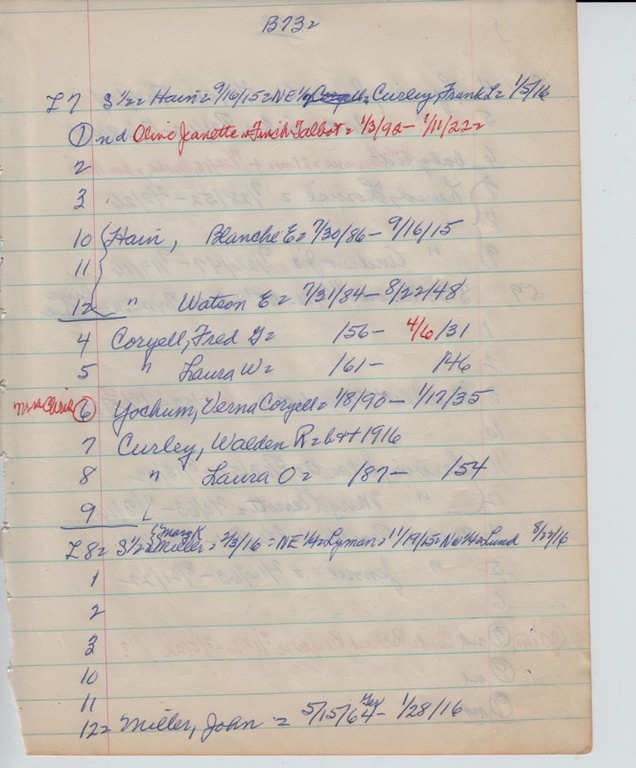 B732
L7 S 1/2= Hain = 9/16/15 = NE 1/4 Coryell, Curley, Frank L = 1/5/16
1 nd Olive Janette "Finch" Talbot = 1/3/90 - 1/11/22=
2
3
10 Hain, Blanche E = 7/30/86 - 9/16/15
11
12 " Watson E = 7/31/84 - 8/22/48
4 Coryell, Fred G = /56 - 4/6/31
5 " Laura W = /61 - /46
Mrs Chris 6 Yochum, Verna Coryell = 1/8/90 - 1/17/35
7 Curley, Walden R = b++ 1916
8 " Laura O = /87 - /54
9 L
Mary K
L8= S 1/2= Miller = 2/3/16 = NE 1/4= Lyman = 11/19/15 = NW 1/4= Lund 8/27/16
1
2
3
10
11
12= Miller, John = 5/15/64 - 1/28/16